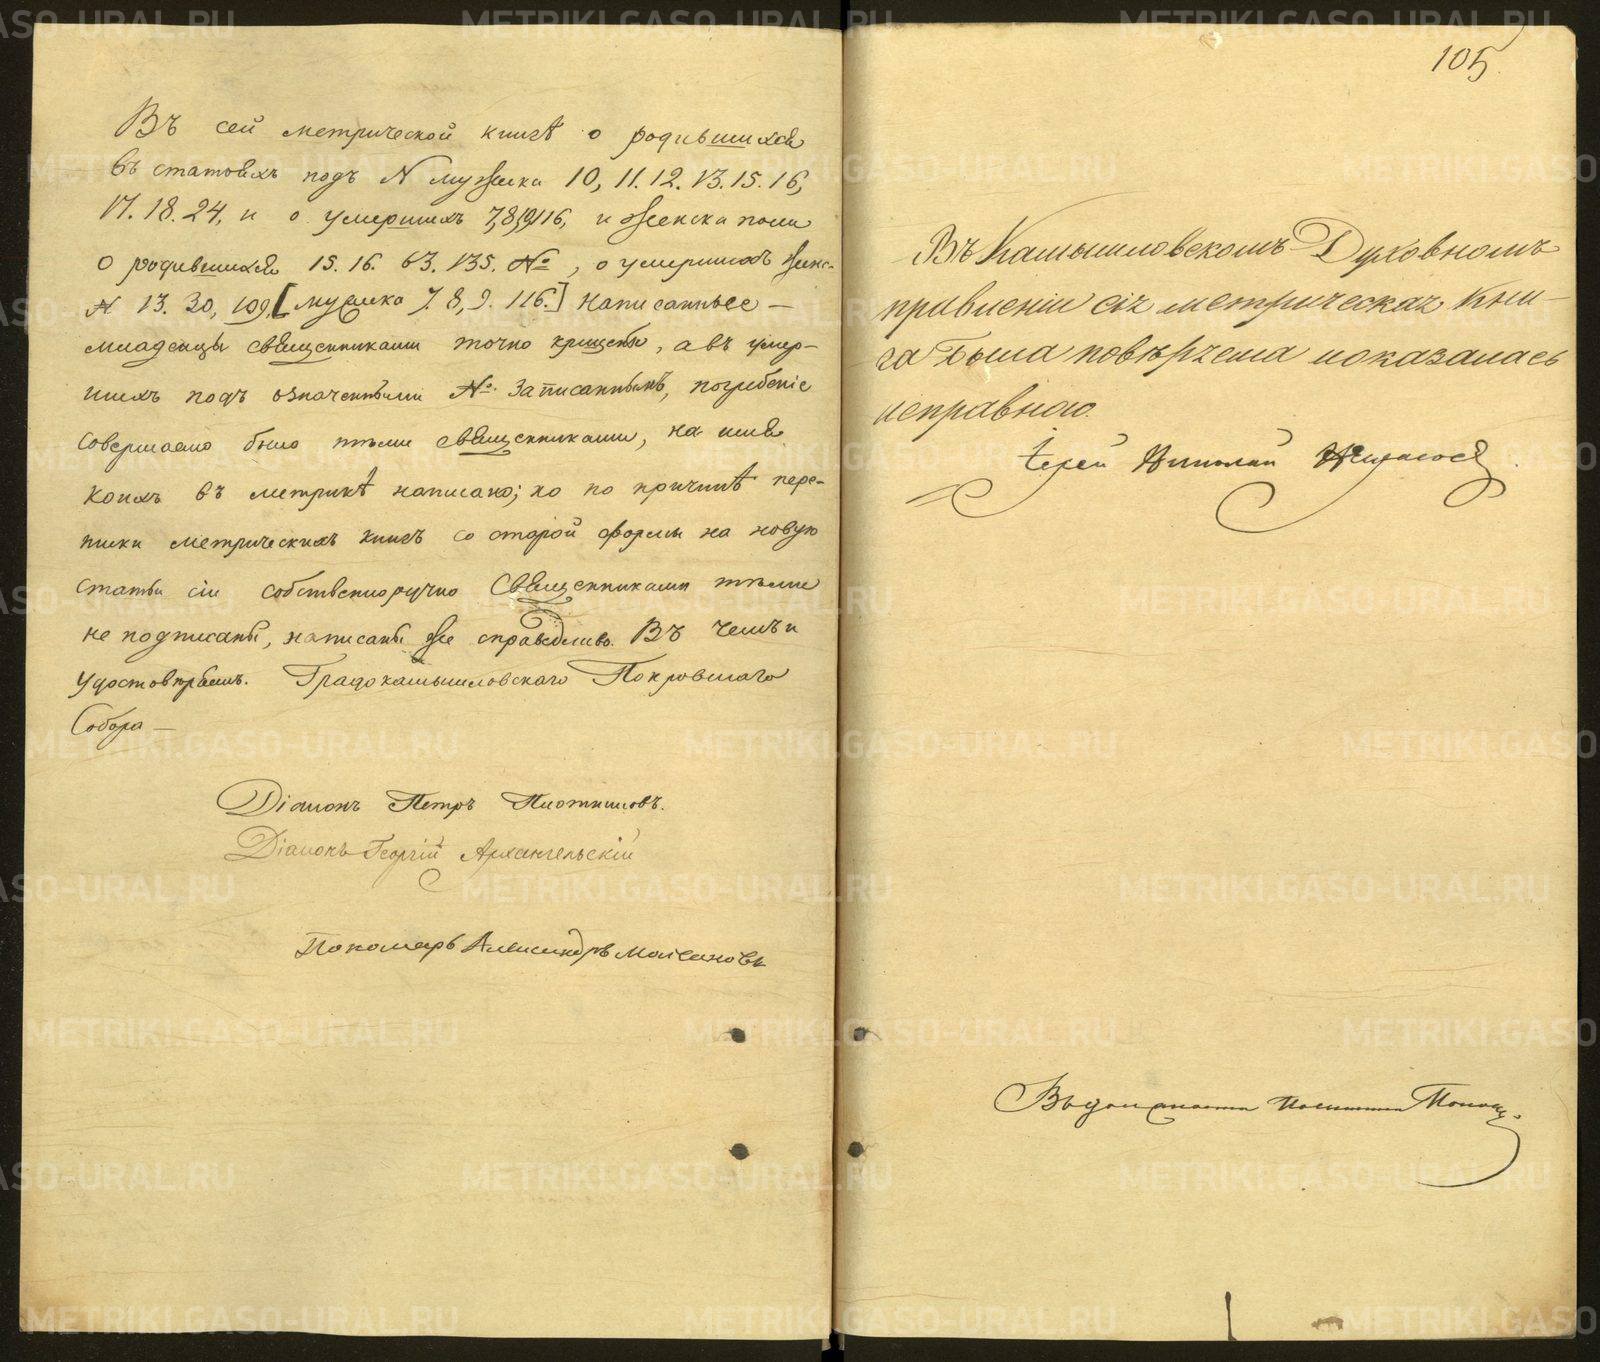 Въ сей метрической книгѣ о родившихся
въ статьяхъ подъ N мужска 10, 11. 12. 13. 15. 16,
17. 18. 24, и о умершихъ 7,8,9,116, и женска пола
о родившихся 15. 16. 63. 135. №, о умершихъ женс-
N 13. 30, 109, [мужска 7. 8, 9. 116.] написанные —
младенцы священниками точно крещены, а въ умер-
шихъ подъ означенными № записаннымъ, погребеніе
совершаемо было тѣми священниками, на имя
коихъ въ метрикѣ написано; но по причинѣ пере-
писки метрическихъ книгъ со старой формы на новую
статьи сіи собственноручно священниками тѣми
не подписаны, написаны же справедливо. Въ чемъ и
удостовѣряемъ. Градокамышловскаго Покровскаго
Собора —
Діаконъ Петръ Плотниковъ.
Діаконъ Георгій Архангельскій
Пономарь Александръ Молчановъ
105
Въ Камышловскомъ Духовномъ
правленіи сія метрическая кни-
га была повѣрена и оказалась
исправною.
Іерей Николай